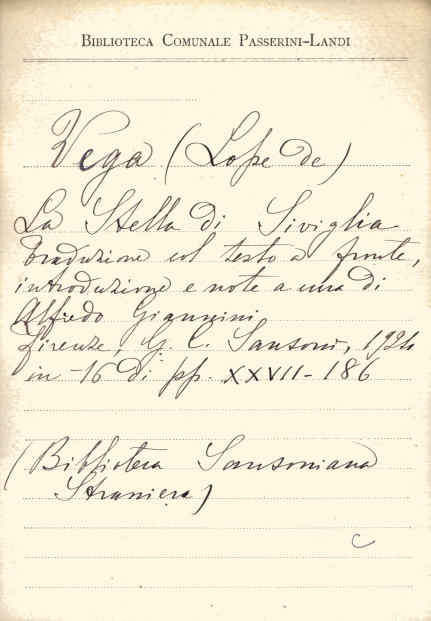 BIBLIOTECA COMUNALE PASSERINI-LANDI
Vega (Lope de)
La Stella di Siviglia
Traduzione col testo a fronte,
introduzione e note a cura di
Alfredo Giannini
Firenze, G. C. Sansoni, 1924
in-16 di pp. XXVII-186
(Biblioteca Sansoniana
Straniera)
C